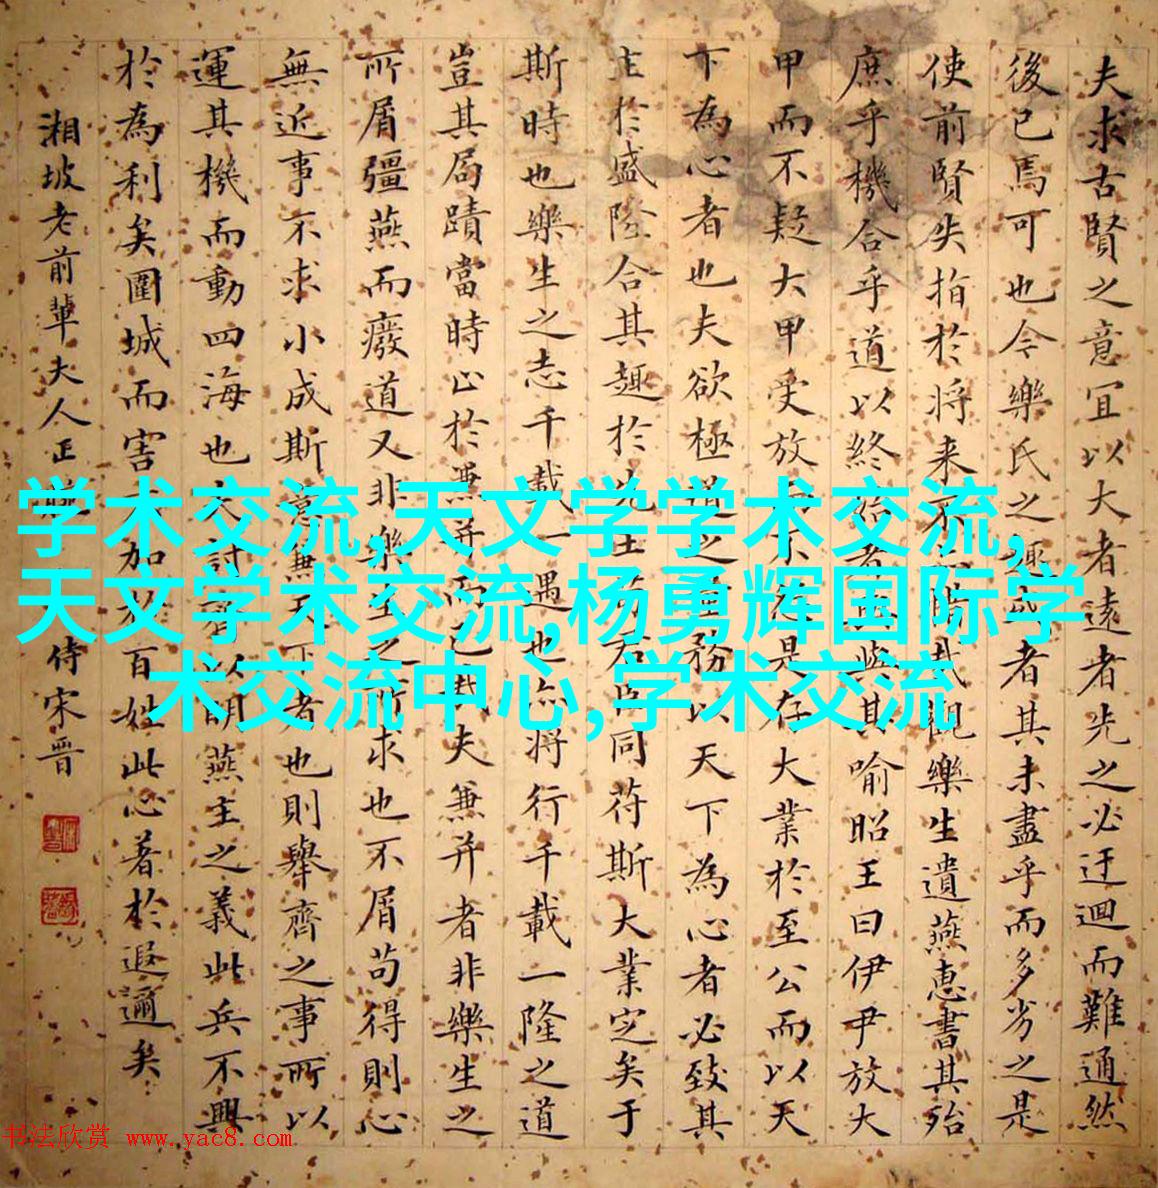 夫求古賢之意宜以大者遠者先之必迂迴而難通然
後已焉可也今樂氏之趣或者其未盡乎而多劣之是
使前賢失指於將来不亦惜哉觀樂生遺燕惠書其殆
庶乎機合乎道以終始者與其喻昭王曰伊尹放大
甲而不疑大甲受放而不怨是存大業於至公而以天
下為心者也夫欲極道之量務以天下為心者必致其
主於盛隆合其趣於先王苟君臣同苻斯大業定矣于
斯時也樂生之志千載一遇也亦將行千載一隆之道
豈其局蹟當時止於兼并而已哉夫兼并者非樂生之
所屑彊燕而廢道又非樂生之所求也不屑苟得則心
無近事不求小成斯意兼天下者也則舉齊之事所以
運其機而動四海也夫討齊以明燕主之義此兵不興
於為利矣圍城而害不加於百姓此心著於遐邇矣
湘坡老前輩夫人正 侍宋晋
学术交流,天文学学术交流,
天文学术交流,杨勇辉国际学
术交流中心,学术交流
书法欣赏 www.yac8.com